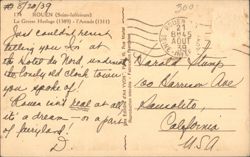 # 8/20/39
ROUEN (Seine-Inférieure)
La Grosse Horloge (1389) - l'Arcade (1511)
Just couldn't resist
telling you I's at
the Hotel du Nord under
the lovely old clock tower
you spoke of!
Rouen isn't real at all -
it's a dream - or a part
of fairyland!
D
ROUEN
8H45
AOUT
39
Harold
100 Harrison Ave
Sausalito,
California
U.S.A
300